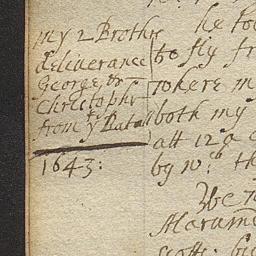 my 2 Brothrs
deliverance
George &
Christophr
from ye Batall
1643:
he too
to fly fr
where m
both my
att 12 a c
by wch th
We
Alarums